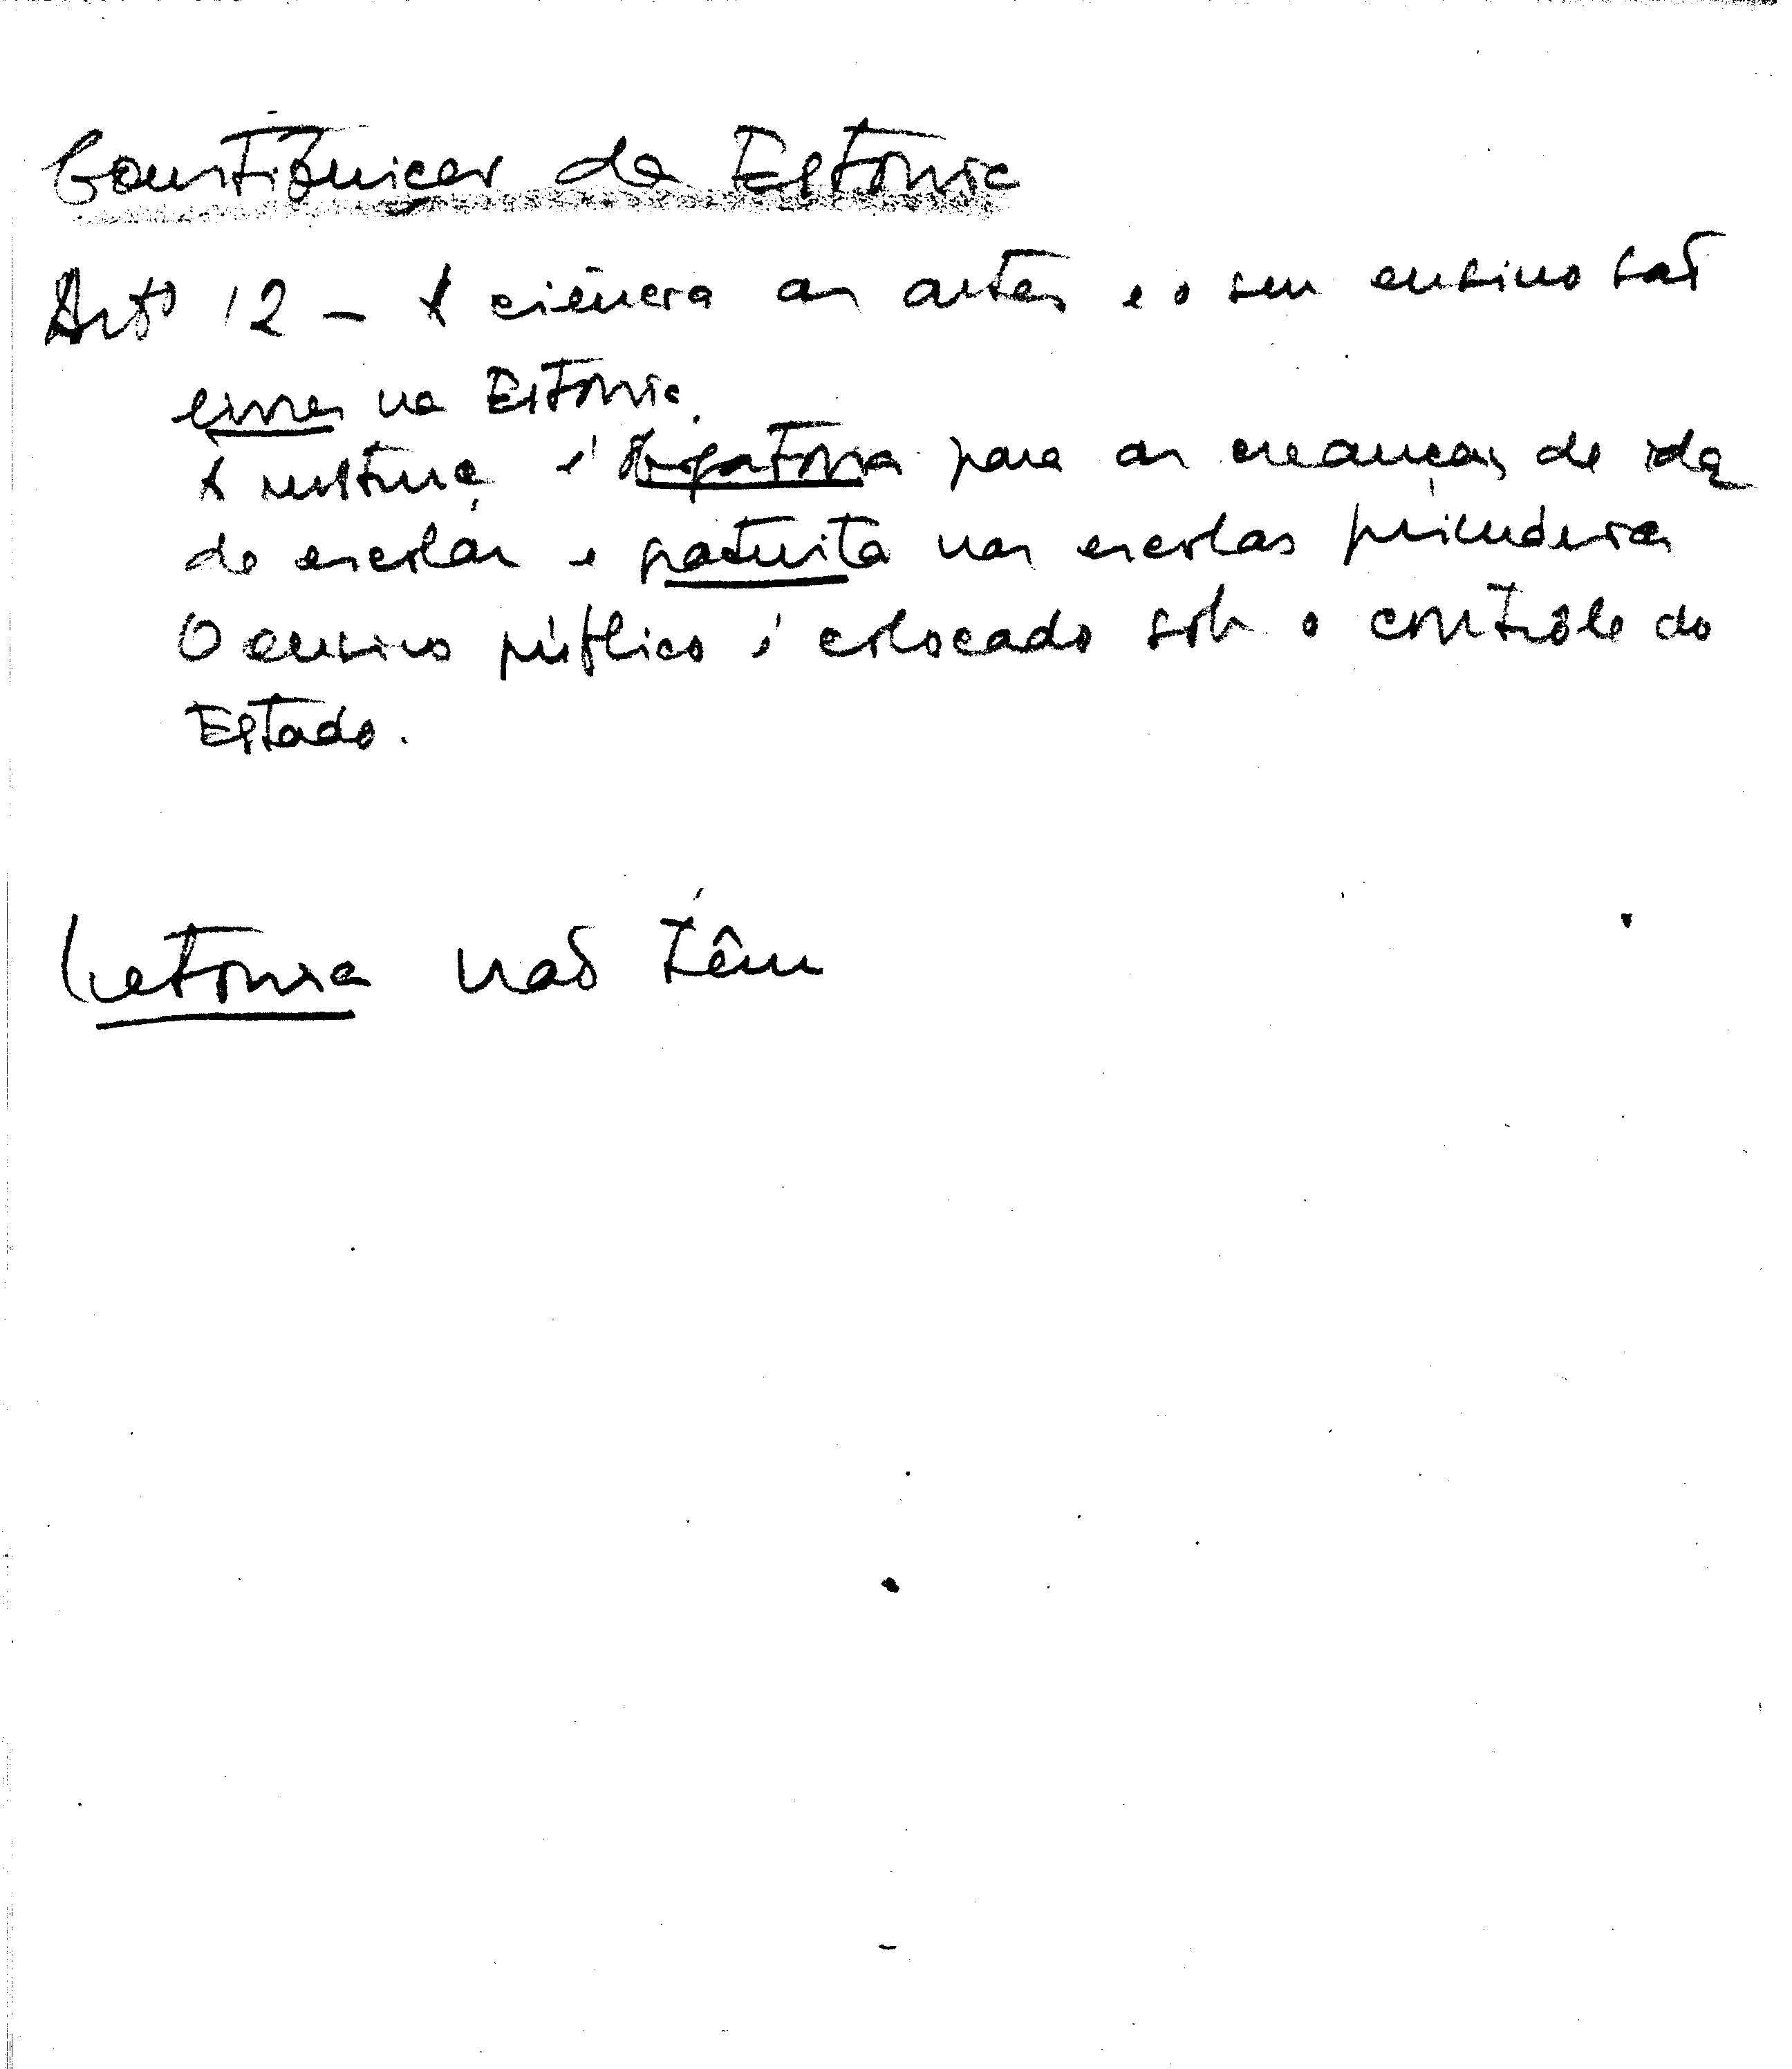 Constituição da Estonia
Artº 12 - A ciencia as artes e o seu ensino são
livres na Estonia.
A instrução é obrigatoria para as creanças de ida
de escolar e gratuita nas escolas
O ensino público é colocado sob o contrôle do
Estado.
Letonia não têm